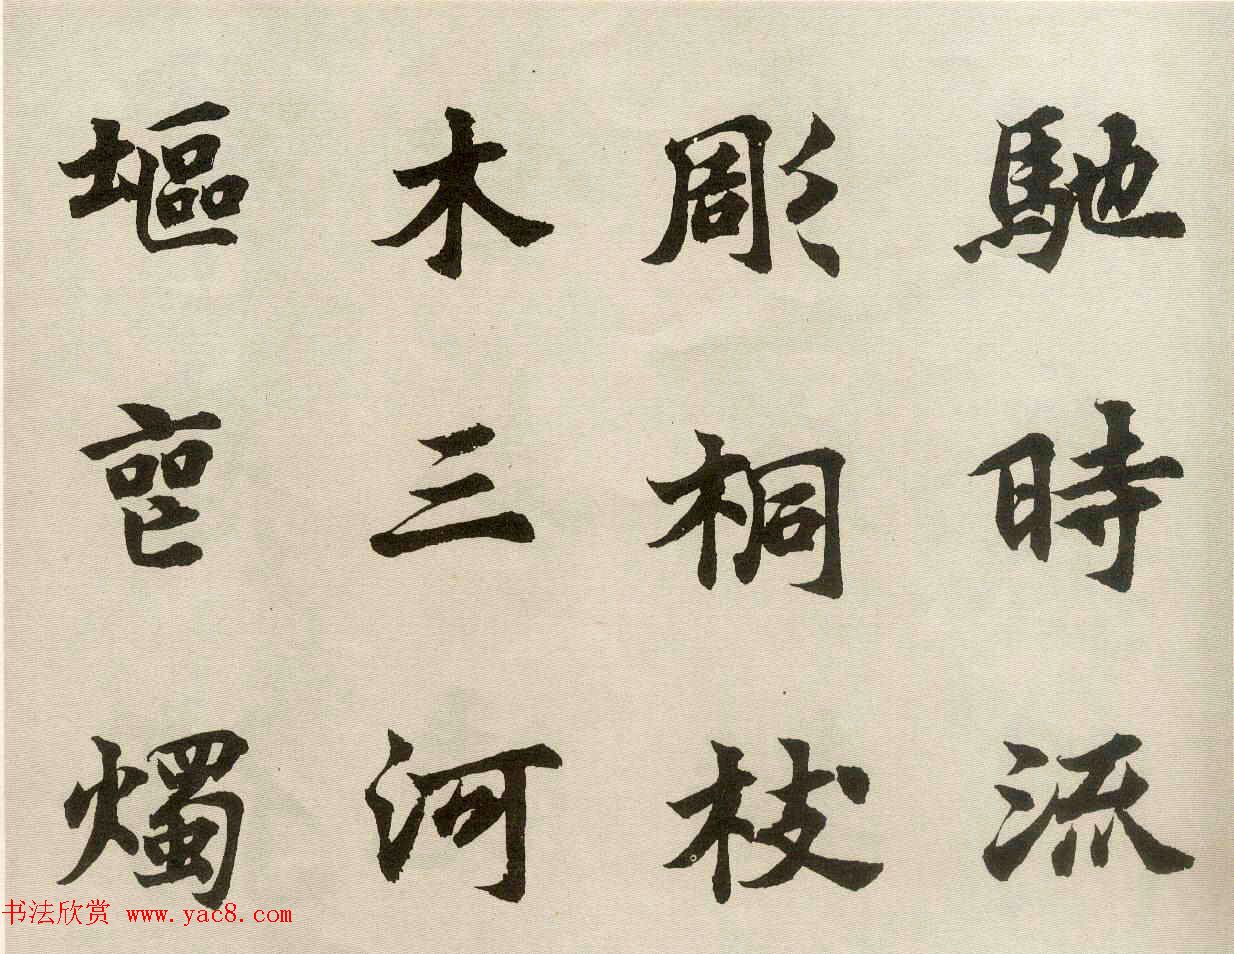 馳時流
彫桐
木三河
塸燭
书法欣赏 www.yac8.com